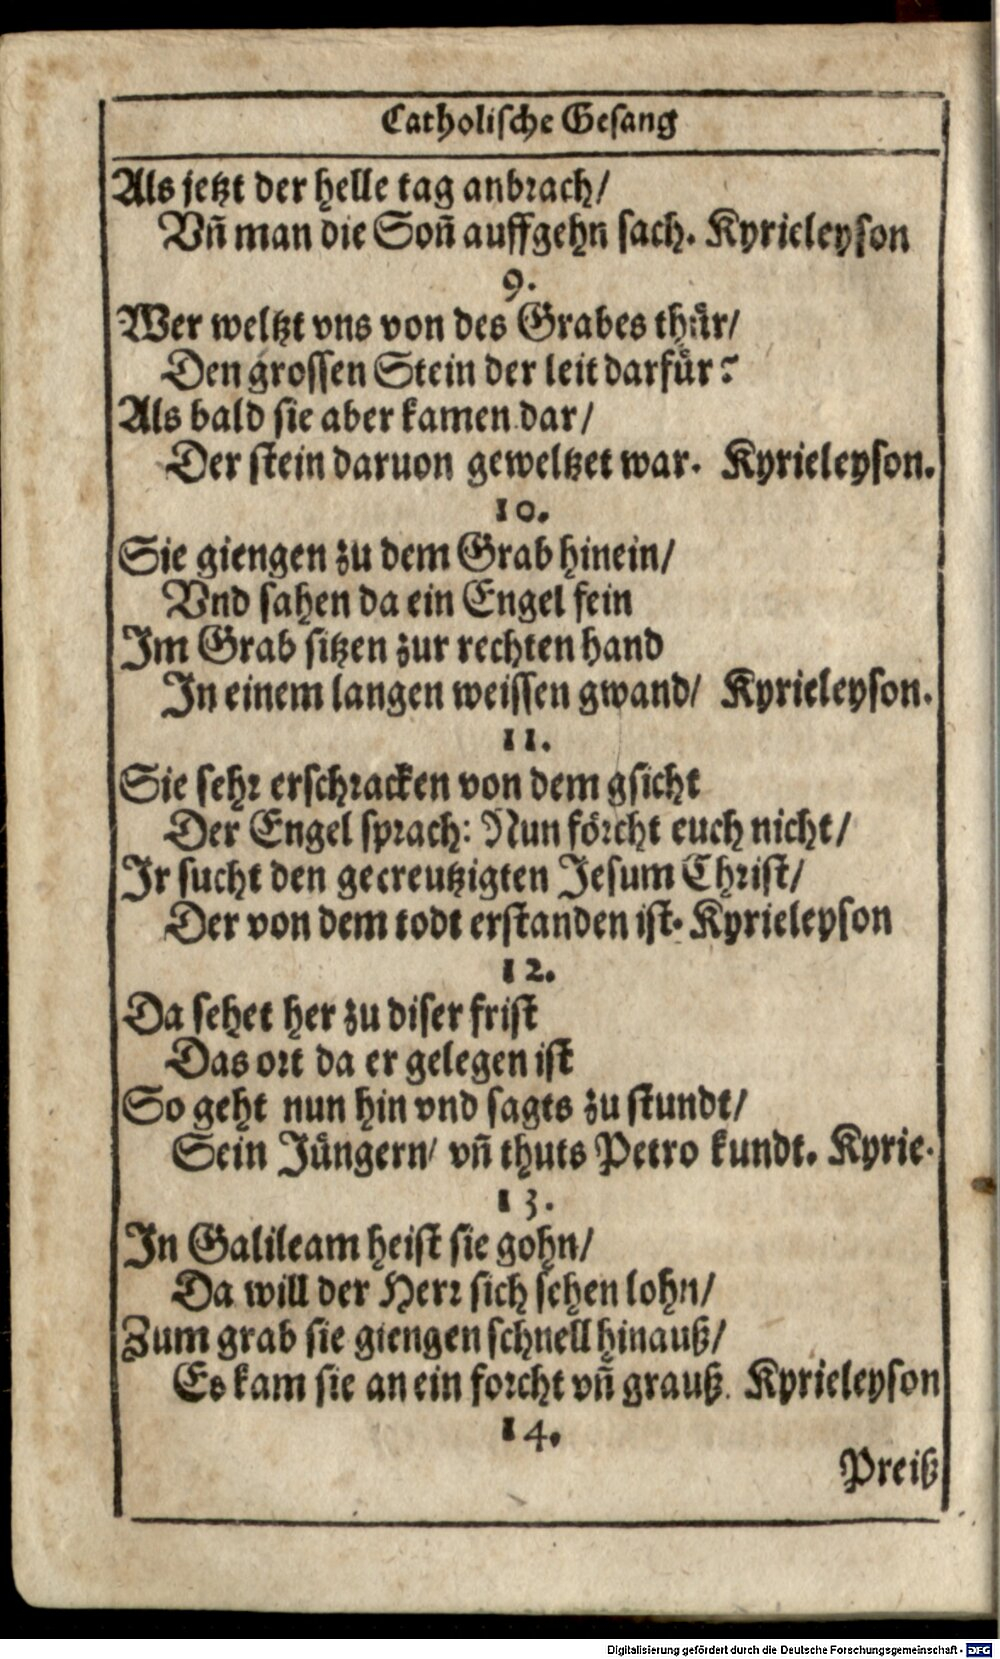 Catholische Gesang
Als jetzt der helle tag anbrach/
Vñ man die Soñ auffgehn sach. Kyrieleyson
9.
Wer weltzt vns von des Grabes thür/
Den grossen Stein der leit darfür?
Als bald sie aber kamen dar/
Der stein daruon geweltzet war. Kyrieleyson.
10.
Sie giengen zu dem Grab hinein/
Vnd sahen da ein Engel fein
Im Grab sitzen zur rechten hand
In einem langen weissen gwand/ Kyrieleyson.
11.
Sie sehr erschracken von dem gsicht
Der Engel sprach: Nun förcht euch nicht/
Ir sucht den gecreutzigten Jesum Christ/
Der von dem todt erstanden ist. Kyrieleyson
12.
Da sehet her zu diser frist
Das ort da er gelegen ist
So geht nun hin vnd sagts zu stundt/
Sein Jüngern/ vñ thuts Petro kundt. Kyrie.
13.
In Galileam heist sie gohn/
Da will der Herr sich sehen lohn/
Zum grab sie giengen schnell hinauß/
Es kam sie an ein forcht vñ grauß. Kyrieleyson
14.
Preiß
Digitalisierung gefördert durch die Deutsche Forschungsgemeinschaft - DFG